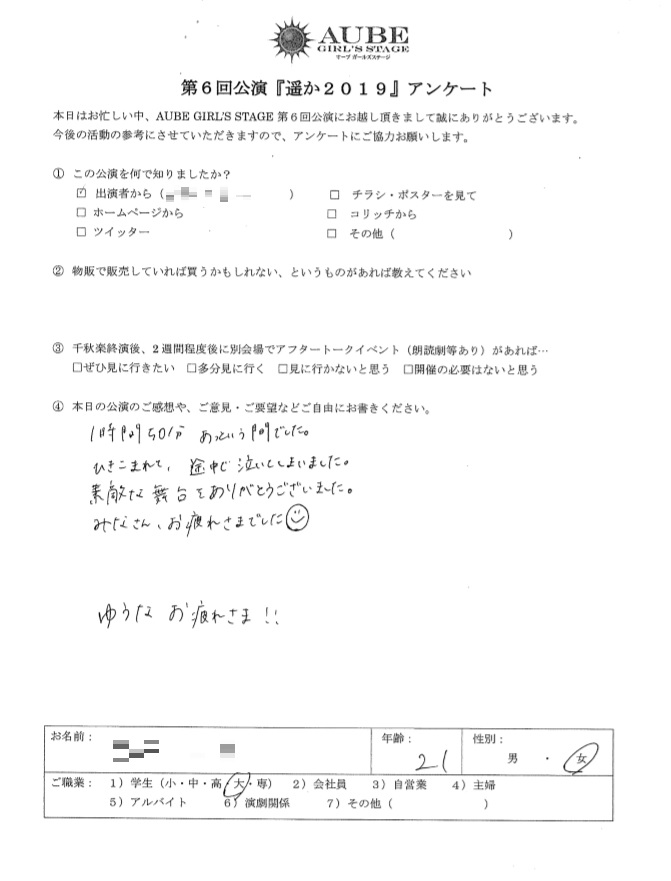 AUBE
GIRL'S STAGE
オーブ ガールズステージ
第６回公演『遥か２０１９』アンケート
本日はお忙しい中、AUBE GIRL'S STAGE 第６回公演にお越し頂きまして誠にありがとうございます。
今後の活動の参考にさせていただきますので、アンケートにご協力お願いします。
① この公演を何で知りましたか？
☑ 出演者から（　　　　　） □ チラシ・ポスターを見て
□ ホームページから □ コリッチから
□ ツイッター □ その他（　　　　　）
② 物販で販売していれば買うかもしれない、というものがあれば教えてください
③ 千秋楽終演後、２週間程度後に別会場でアフタートークイベント（朗読劇等あり）があれば…
□ぜひ見に行きたい □多分見に行く □見に行かないと思う □開催の必要はないと思う
④ 本日の公演のご感想や、ご意見・ご要望などご自由にお書きください。
1時間50分 あっという間でした。
ひきこまれて、途中で泣いてしまいました。
素敵な舞台をありがとうございました。
みなさん、お疲れさまでした
ゆうな お疲れさま!!
お名前： 年齢： 21 性別： 男 ・ 女
ご職業： １）学生（小・中・高・大・専） ２）会社員 ３）自営業 ４）主婦
５）アルバイト ６）演劇関係 ７）その他（　　　　　）